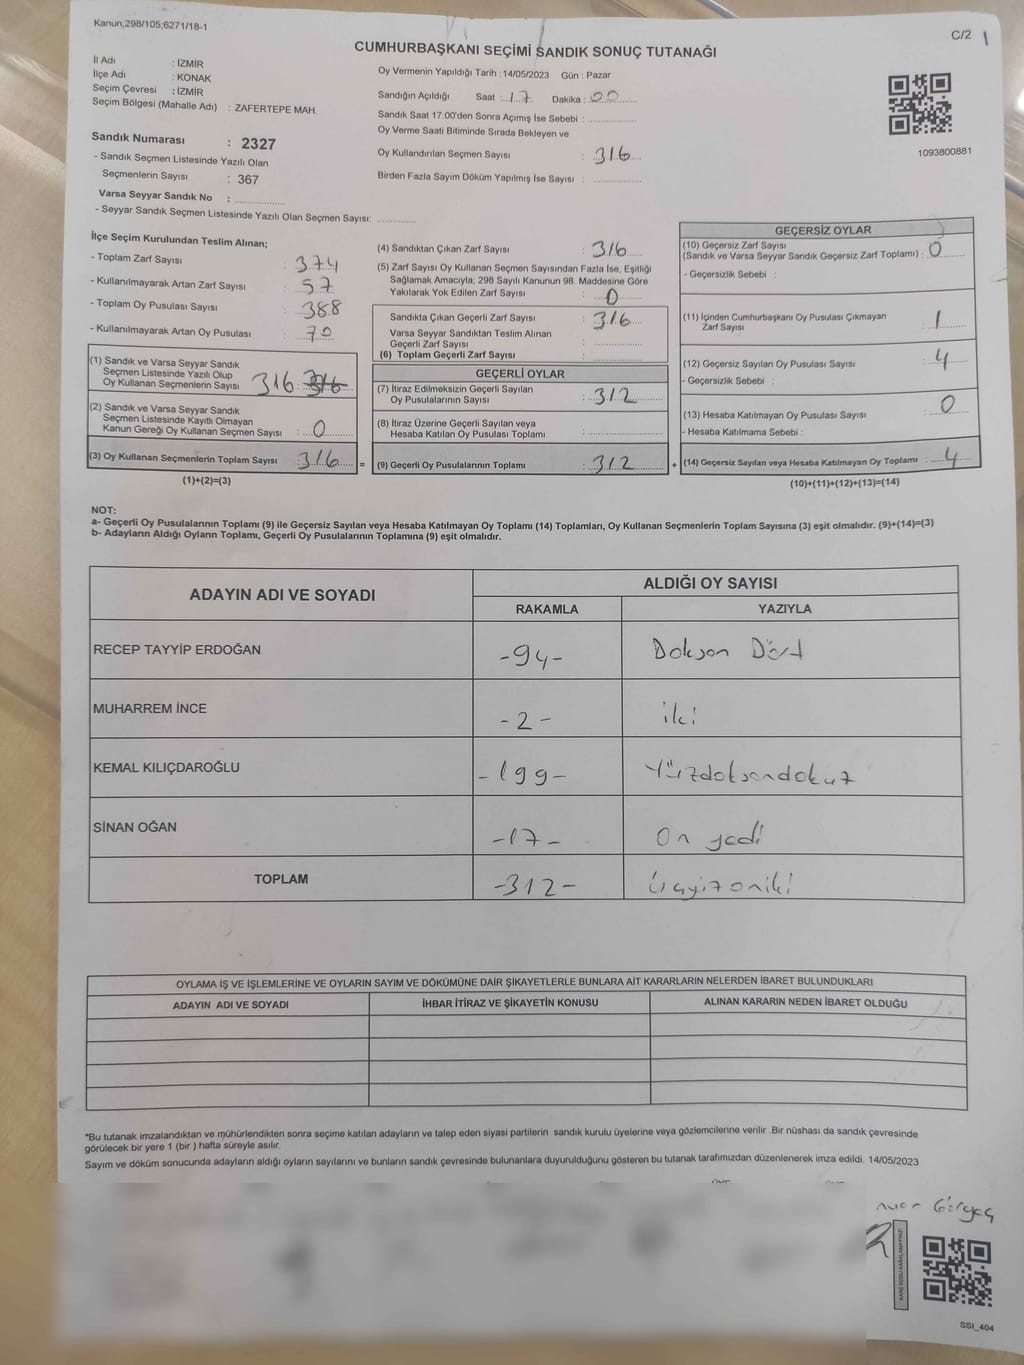 Kanun;298/105;6271/18-1
C/2 1
CUMHURBAŞKANI SEÇİMİ SANDIK SONUÇ TUTANAĞI
İl Adı : İZMİR
İlçe Adı : KONAK
Seçim Çevresi : İZMİR
Seçim Bölgesi (Mahalle Adı) : ZAFERTEPE MAH.
Oy Vermenin Yapıldığı Tarih : 14/05/2023 Gün : Pazar
Sandığın Açıldığı Saat : 17 Dakika : 00
Sandık Saat 17:00'den Sonra Açımış İse Sebebi :
Oy Verme Saati Bitiminde Sırada Bekleyen ve
Oy Kullandırılan Seçmen Sayısı : 316
Birden Fazla Sayım Döküm Yapılmış İse Sayısı :
1093800881
Sandık Numarası : 2327
- Sandık Seçmen Listesinde Yazılı Olan
Seçmenlerin Sayısı : 367
Varsa Seyyar Sandık No :
- Seyyar Sandık Seçmen Listesinde Yazılı Olan Seçmen Sayısı:
İlçe Seçim Kurulundan Teslim Alınan;
- Toplam Zarf Sayısı : 374
- Kullanılmayarak Artan Zarf Sayısı : 57
- Toplam Oy Pusulası Sayısı : 388
- Kullanılmayarak Artan Oy Pusulası : 70
(1) Sandık ve Varsa Seyyar Sandık
Seçmen Listesinde Yazılı Olup
Oy Kullanan Seçmenlerin Sayısı 316 : 316
(2) Sandık ve Varsa Seyyar Sandık
Seçmen Listesinde Kayıtlı Olmayan
Kanun Gereği Oy Kullanan Seçmen Sayısı : 0
(3) Oy Kullanan Seçmenlerin Toplam Sayısı : 316
(1)+(2)=(3)
(4) Sandıktan Çıkan Zarf Sayısı : 316
(5) Zarf Sayısı Oy Kullanan Seçmen Sayısından Fazla İse, Eşitliği
Sağlamak Amacıyla; 298 Sayılı Kanunun 98. Maddesine Göre
Yakılarak Yok Edilen Zarf Sayısı : 0
Sandıkta Çıkan Geçerli Zarf Sayısı : 316
Varsa Seyyar Sandıktan Teslim Alınan
Geçerli Zarf Sayısı :
(6) Toplam Geçerli Zarf Sayısı :
GEÇERLİ OYLAR
(7) İtiraz Edilmeksizin Geçerli Sayılan
Oy Pusulalarının Sayısı : 312
(8) İtiraz Üzerine Geçerli Sayılan veya
Hesaba Katılan Oy Pusulası Toplamı :
= (9) Geçerli Oy Pusulalarının Toplamı : 312
GEÇERSİZ OYLAR
(10) Geçersiz Zarf Sayısı
(Sandık ve Varsa Seyyar Sandık Geçersiz Zarf Toplamı) : 0
- Geçersizlik Sebebi :
(11) İçinden Cumhurbaşkanı Oy Pusulası Çıkmayan
Zarf Sayısı : 1
(12) Geçersiz Sayılan Oy Pusulası Sayısı : 4
- Geçersizlik Sebebi :
(13) Hesaba Katılmayan Oy Pusulası Sayısı : 0
- Hesaba Katılmama Sebebi :
+ (14) Geçersiz Sayılan veya Hesaba Katılmayan Oy Toplamı : 4
(10)+(11)+(12)+(13)=(14)
NOT:
a- Geçerli Oy Pusulalarının Toplamı (9) ile Geçersiz Sayılan veya Hesaba Katılmayan Oy Toplamı (14) Toplamları, Oy Kullanan Seçmenlerin Toplam Sayısına (3) eşit olmalıdır. (9)+(14)=(3)
b- Adayların Aldığı Oyların Toplamı, Geçerli Oy Pusulalarının Toplamına (9) eşit olmalıdır.
ADAYIN ADI VE SOYADI ALDIĞI OY SAYISI
RAKAMLA YAZIYLA
RECEP TAYYİP ERDOĞAN -94- Doksan Dört
MUHARREM İNCE -2- iki
KEMAL KILIÇDAROĞLU -199- Yüzdoksandokuz
SİNAN OĞAN -17- On yedi
TOPLAM -312- Üçyüzoniki
OYLAMA İŞ VE İŞLEMLERİNE VE OYLARIN SAYIM VE DÖKÜMÜNE DAİR ŞİKAYETLERLE BUNLARA AİT KARARLARIN NELERDEN İBARET BULUNDUKLARI
ADAYIN ADI VE SOYADI İHBAR İTİRAZ VE ŞİKAYETİN KONUSU ALINAN KARARIN NEDEN İBARET OLDUĞU
*Bu tutanak imzalandıktan ve mühürlendikten sonra seçime katılan adayların ve talep eden siyasi partilerin sandık kurulu üyelerine veya gözlemcilerine verilir .Bir nüshası da sandık çevresinde
görülecek bir yere 1 (bir ) hafta süreyle asılır.
Sayım ve döküm sonucunda adayların aldığı oyların sayılarını ve bunların sandık çevresinde bulunanlara duyurulduğunu gösteren bu tutanak tarafımızdan düzenlenerek imza edildi. 14/05/2023
SSI_404